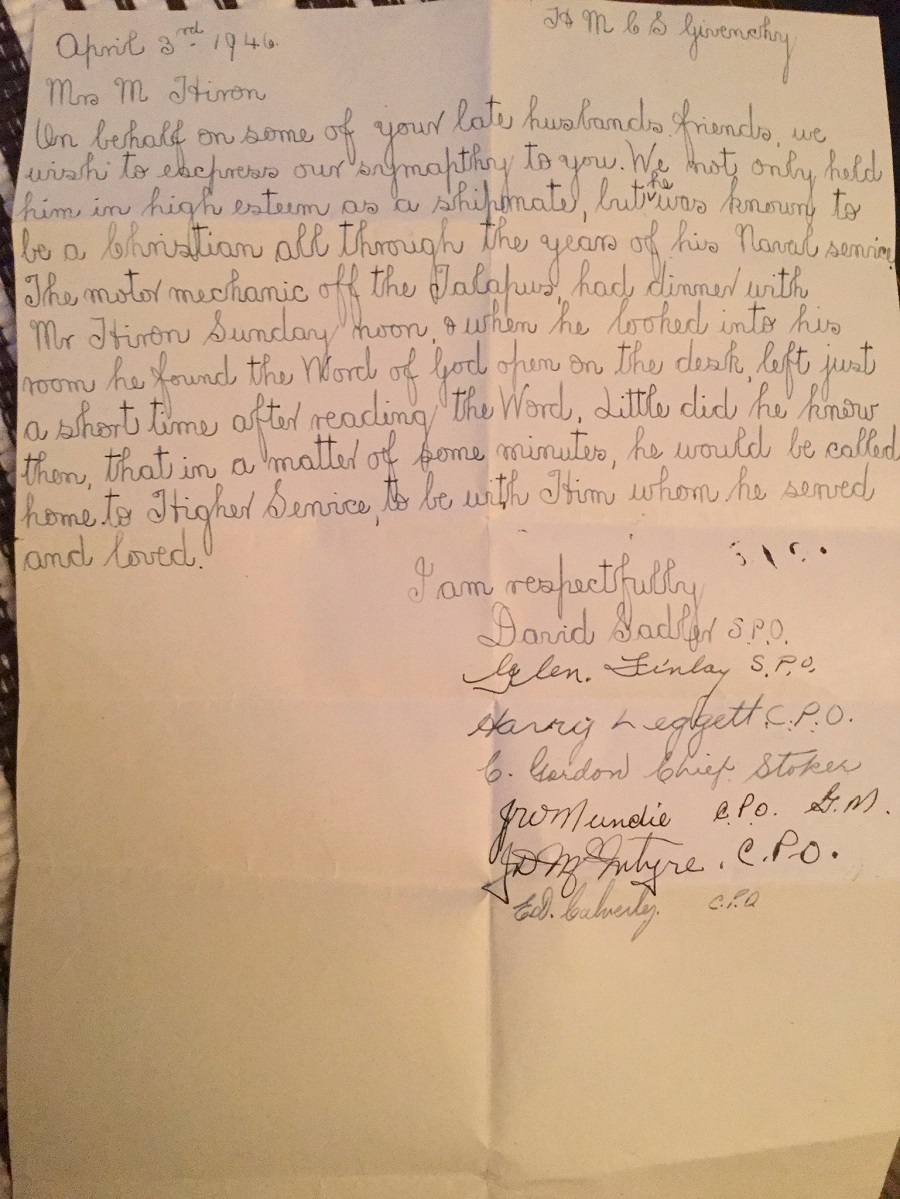 H M C S Givenchy
April 3rd 1946.
Mrs M Hiron
On behalf on some of your late husbands friends, we
wish to escpress our symapthy to you. We not only held
him in high esteem as a shipmate, but he was known to
be a Christian all through the years of his Naval service
The motor mechanic off the Talapus, had dinner with
Mr Hiron Sunday noon, & when he looked into his
room he found the Word of God open on the desk, left just
a short time after reading the Word. Little did he know
then, that in a matter of some minutes, he would be called
home to Higher Service, to be with Him whom he served
and loved.
I am respectfully
David Sadler S.P.O.
Glen. Finlay S.P.O.
Harry Leggett C.P.O.
C. Gordon Chief Stoker
JW Mundie C.P.O. G.M.
JD McIntyre. C.P.O.
Ed. Calverly. C.P.O